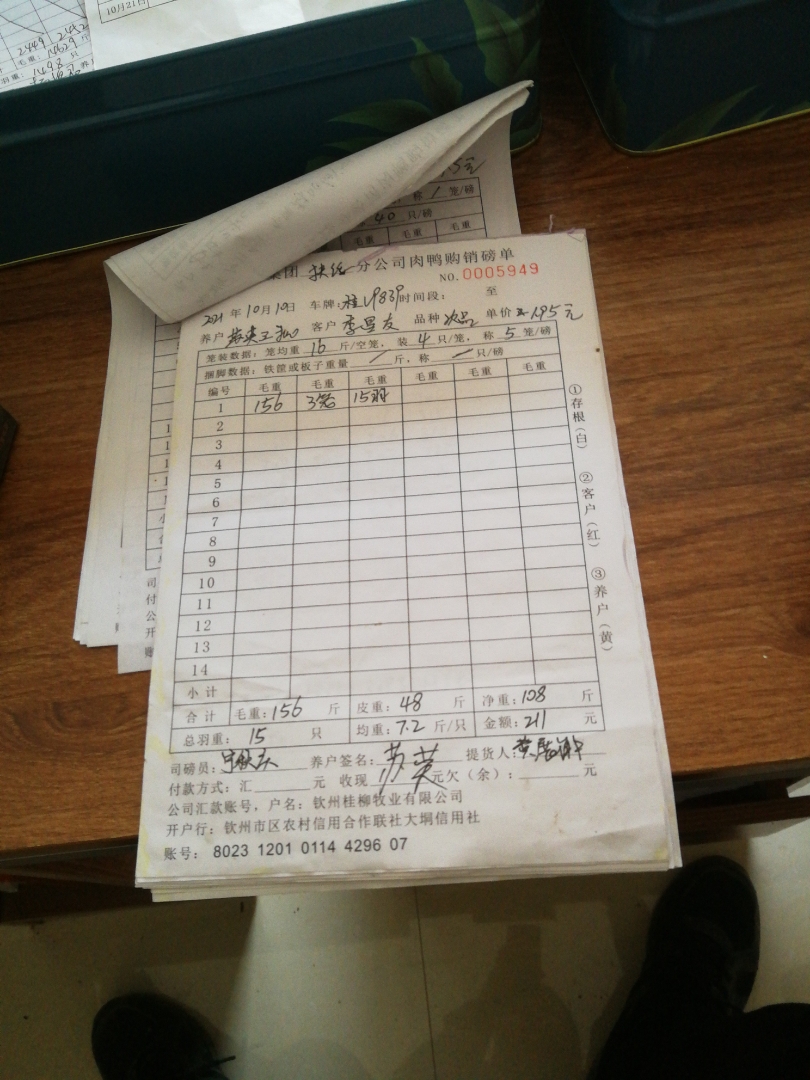 10月21日
2449 2452
毛重: 1629 斤
羽重: 1498 只
5元
称 1 笼/磅
40 只/磅
毛重 毛重 毛重
集团 扶绥 分公司肉鸭购销磅单
NO.0005949
2021 年 10月10日 车牌: 桂U9839 时间段: 至
养户 客户 李昌友 品种 次品 单价 1.95 元
笼装数据: 笼均重 16 斤/空笼, 装 4 只/笼, 称 5 笼/磅
捆脚数据: 铁筐或板子重量 / 斤, 称 / 只/磅
编号 毛重 毛重 毛重 毛重 毛重 毛重
1 156 3笼 15羽
2
3
4
5
6
7
8
9
10
11
12
13
14
小计
合计 毛重: 156 斤 皮重: 48 斤 净重: 108 斤
总羽重: 15 只 均重: 7.2 斤/只 金额: 211 元
司磅员: 养户签名: 苏英 提货人:
付款方式: 汇 元 收现 元欠(余): 元
公司汇款账号, 户名: 钦州桂柳牧业有限公司
开户行: 钦州市区农村信用合作联社大垌信用社
账号: 8023 1201 0114 4296 07
①存根(白) ②客户(红) ③养户(黄)
司
付
公
开
账